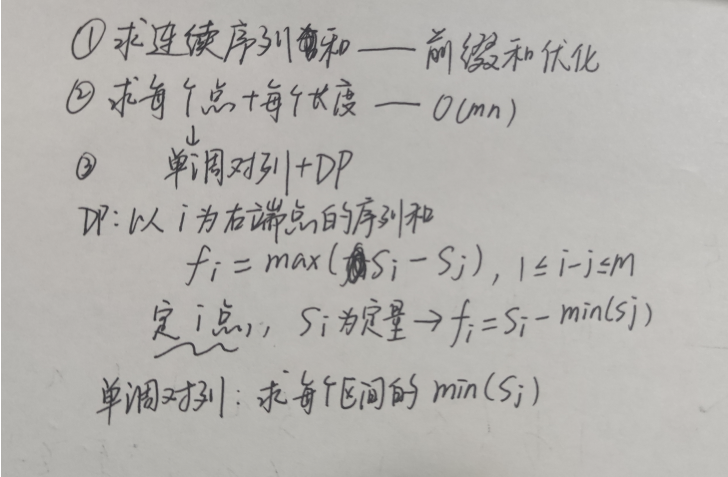 ① 求连续序列和 —— 前缀和优化
② 求每个点+每个长度 —— O(mn)
↓
③ 单调对列+DP
DP:以i为右端点的序列和
fi = max(Si - Sj), 1≤i-j≤m
定i点,, Si为定量→fi=Si-min(Sj)
单调对列:求每个区间的min(Sj)